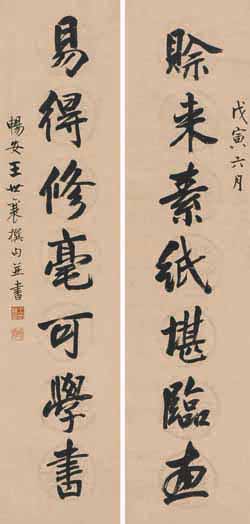 戊寅六月
賒来素紙堪臨畫
易得修毫可學書
暢安王世襄撰句並書